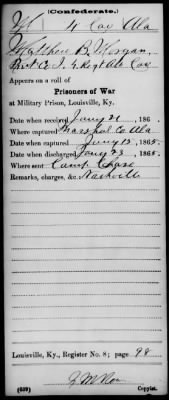 (Confederate.)
M 4 Cav Ala
Matthew B. Morgan,
Pvt Co. I, 4 Regt Ala Cav
Appears on a roll of
Prisoners of War
at Military Prison, Louisville, Ky.
Date when received Jany 21, 186 .
Where captured Marshal Co. Ala
Date when captured Jany 15, 1865.
Date when discharged Jany 23, 1865.
Where sent Camp Chase
Remarks, charges, &c. Nashville
Louisville, Ky., Register No. 8; page 98
(639)
Copyist.